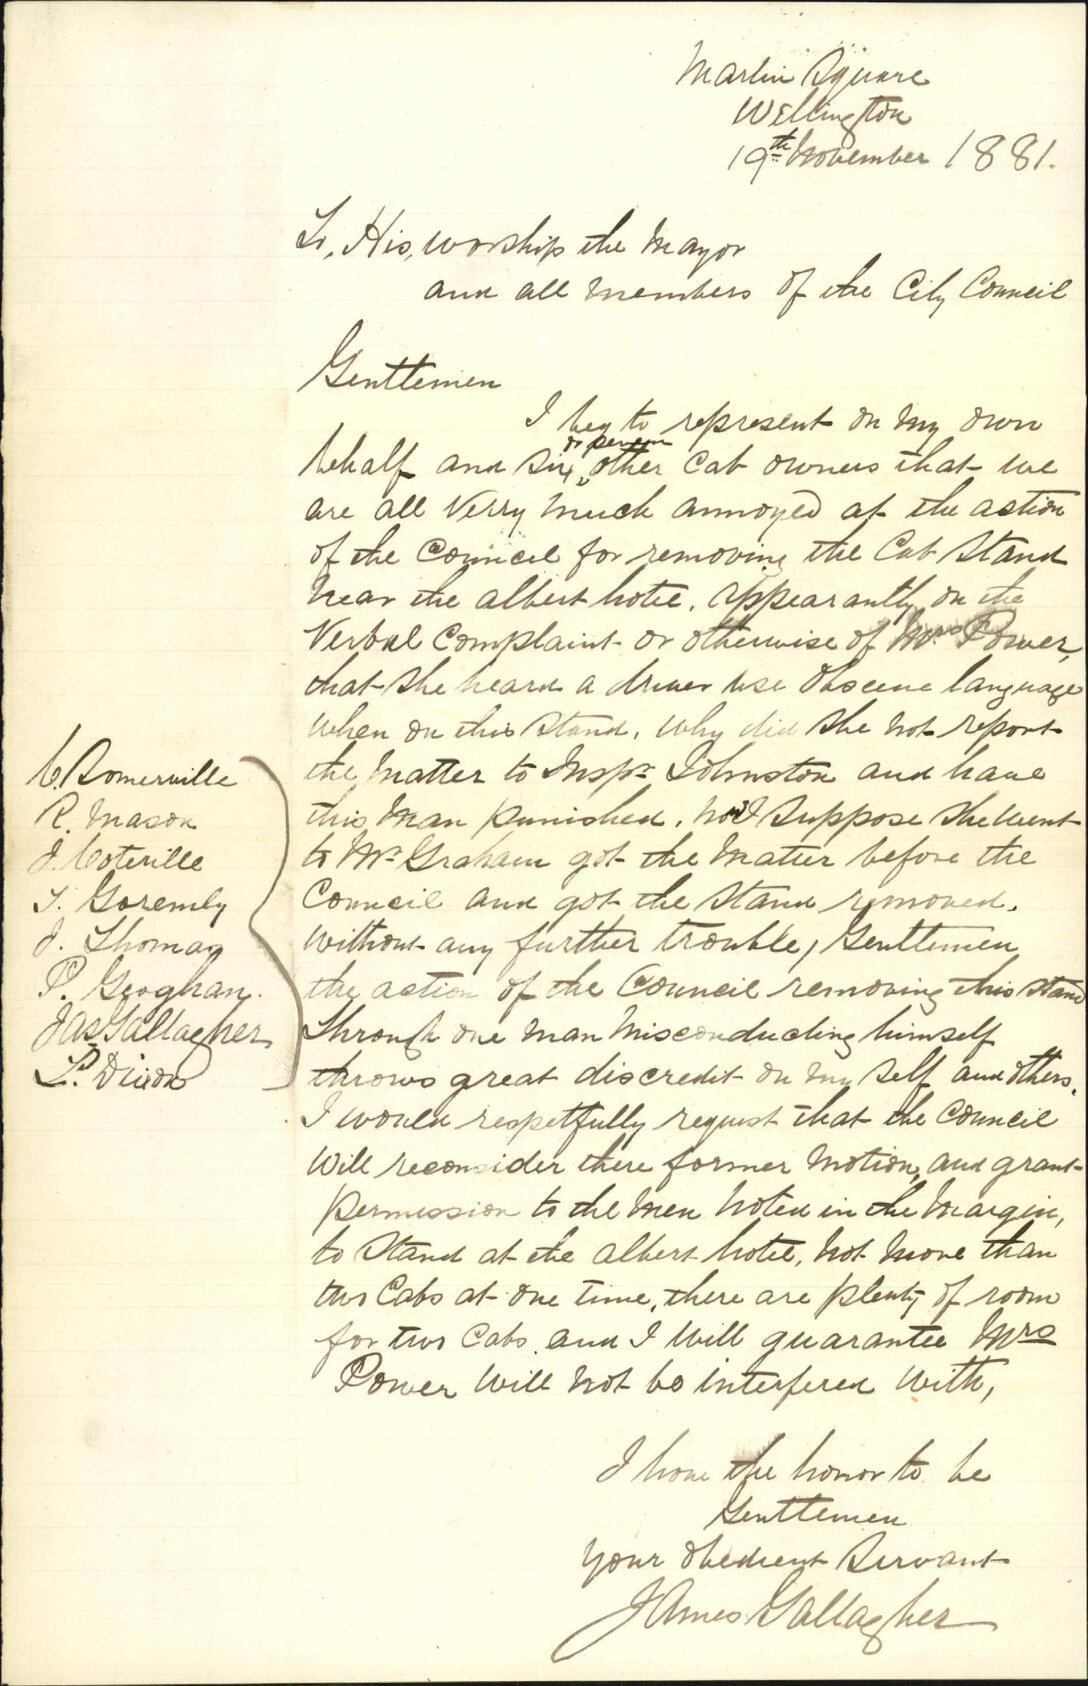 Marlin Square
Wellington
19th November 1881.
To, His, worship the Mayor
and all members of the City Council
Gentlemen
I beg to represent on my own
or seven
behalf and six, other Cab owners that we
are all Verry much annoyed at the action
of the Council for removing the Cab Stand
near the albert hotel. appearantly on the
Verbal Complaint or otherwise of Mrs Power,
that she heard a driver use obscene language
when on this Stand. Why did she not report
the Matter to Inspr Johnston and have
this Man punished. No I suppose she went
to Mr Graham got the Matter before the
Council and got the Stand removed.
without any further trouble, Gentlemen
the action of the Council removing this stand
through one man Misconducting himself
throws great discredit on my self and others.
I would respetfully request that the Council
will reconsider there former Motion, and grant
permission to the Men noted in the Margin,
to Stand at the albert hotel. not more than
two Cabs at one time, there are plenty of room
for two Cabs. and I will guarantee Mrs
Power will not be interfered with,
C. Somerville
R. Mason
J. Coterille
T. Goremly
J. Thomas
P. Geoghan.
Jas Gallagher
P. Dixon
I have the honor to be
Gentlemen
Your obedient Servant
James Gallagher